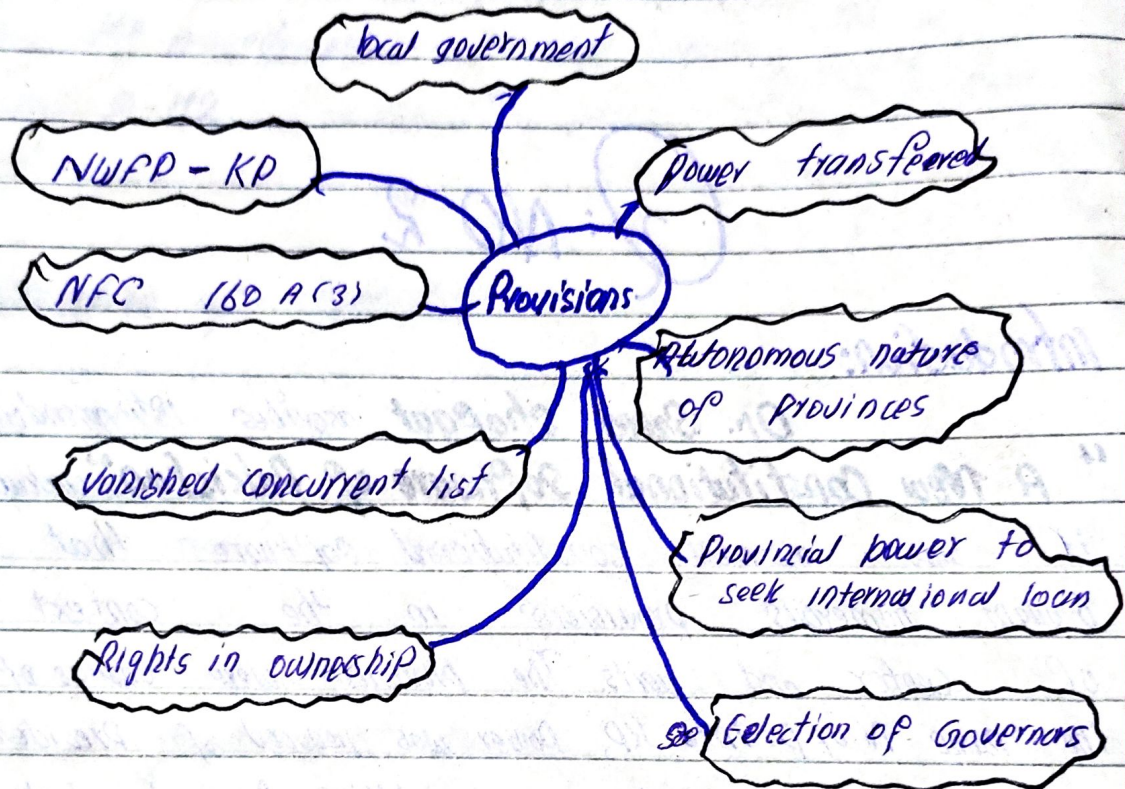 local government
NWFP - KP
Power transfeered
NFC 160 A (3)
Provisions
Autonomous nature
of provinces
Vanished concurrent list
Provincial power to
seek international loan
Rights in ownership
Eelection of Governors